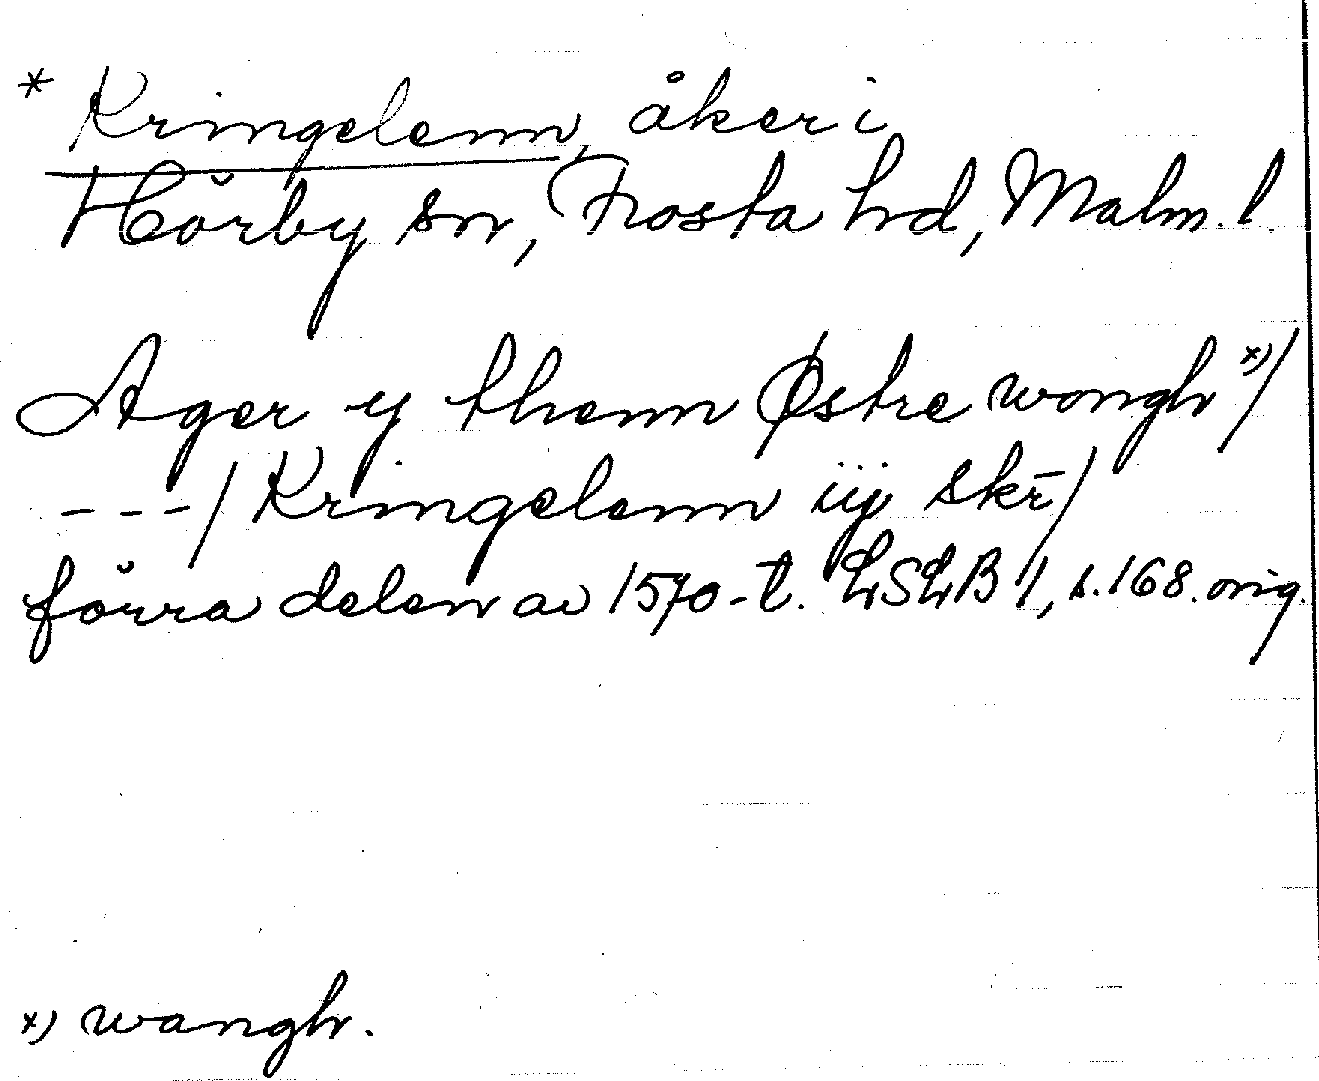 * Kringelenn, åker i
Hörby sn, Frosta hd, Malm. l.
Ager y thenn Østre wongh x)/
---/ Kringelenn iij skr̄/
förra delen av 1570-t. LSLB 1, s. 168. orig.
x) wangh.